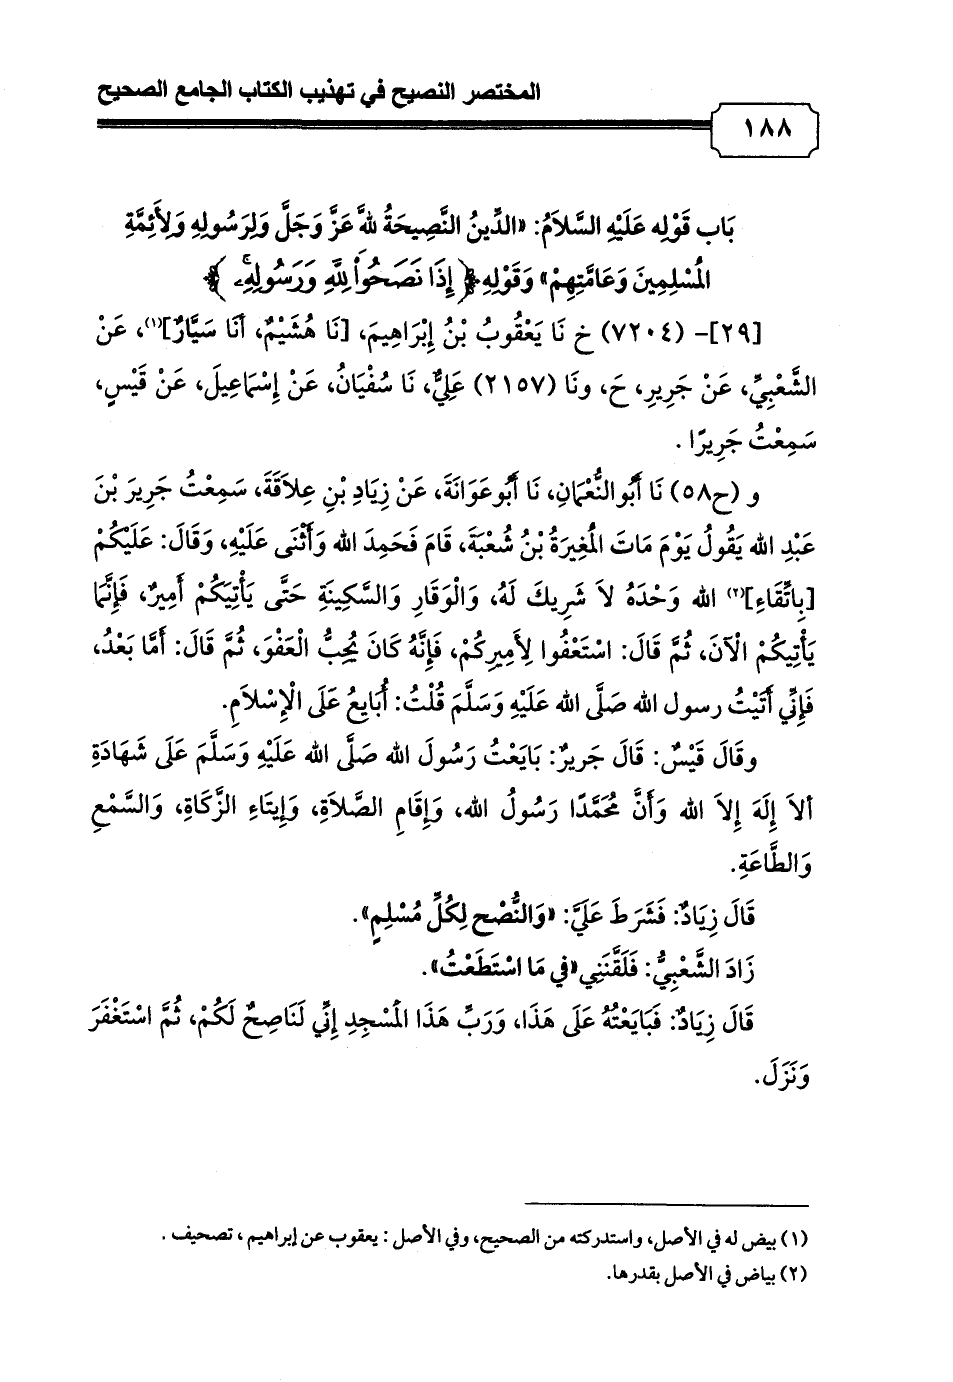 المختصر النصيح في تهذيب الكتاب الجامع الصحيح
١٨٨
بَاب قَوْلِه عَلَيْهِ السَّلاَمُ: «الدِّينُ النَّصِيحَةُ للهَّ عَزَّ وَجَلَّ وَلِرَسُولِهِ وَلِأَئِمَّةِ
الْمُسْلِمِينَ وَعَامَّتِهِمْ» وَقَوْلِهِ ﴿إِذَا نَصَحُوا۟ لِلَّهِ وَرَسُولِهِۦ﴾
[٢٩]- (٧٢٠٤) خ نَا يَعْقُوبُ بْنُ إِبْرَاهِيمَ، [نَا هُشَيْمٌ، أَنَا سَيَّارٌ](١)، عَنْ
الشَّعْبِيِّ، عَنْ جَرِيرٍ، حَ، ونَا (٢١٥٧) عَلِيٌّ، نَا سُفْيَانُ، عَنْ إِسْمَاعِيلَ، عَنْ قَيْسٍ،
سَمِعْتُ جَرِيرًا .
و (ح٥٨) نَا أَبُو النُّعْمَانِ، نَا أَبُو عَوَانَةَ، عَنْ زِيَادِ بْنِ عِلاَقَةَ، سَمِعْتُ جَرِيرَ بْنَ
عَبْدِ الله يَقُولُ يَوْمَ مَاتَ الْمُغِيرَةُ بْنُ شُعْبَةَ، قَامَ فَحَمِدَ الله وَأَثْنَى عَلَيْهِ، وَقَالَ: عَلَيْكُمْ
[بِاتِّقَاءِ](٢) الله وَحْدَهُ لاَ شَرِيكَ لَهُ، وَالْوَقَارِ وَالسَّكِينَةِ حَتَّى يَأْتِيَكُمْ أَمِيرٌ، فَإِنَّمَا
يَأْتِيكُمْ الْآنَ، ثُمَّ قَالَ: اسْتَعْفُوا لِأَمِيرِكُمْ، فَإِنَّهُ كَانَ يُحِبُّ الْعَفْوَ، ثُمَّ قَالَ: أَمَّا بَعْدُ،
فَإِنِّي أَتَيْتُ رسول الله صَلَّى الله عَلَيْهِ وَسَلَّمَ قُلْتُ: أُبَايِعُ عَلَى الْإِسْلاَمِ.
وقَالَ قَيْسٌ: قَالَ جَرِيرٌ: بَايَعْتُ رَسُولَ الله صَلَّى الله عَلَيْهِ وَسَلَّمَ عَلَى شَهَادَةِ
ألاَ إِلَهَ إِلاَ الله وَأَنَّ مُحَمَّدًا رَسُولُ الله، وَإِقَامِ الصَّلاَةِ، وَإِيتَاءِ الزَّكَاةِ، وَالسَّمْعِ
وَالطَّاعَةِ.
قَالَ زِيَادٌ: فَشَرَطَ عَلَيَّ: «وَالنُّصْحِ لِكُلِّ مُسْلِمٍ».
زَادَ الشَّعْبِيُّ: فَلَقَّنَنِي «فِي مَا اسْتَطَعْتُ».
قَالَ زِيَادٌ: فَبَايَعْتُهُ عَلَى هَذَا، وَرَبِّ هَذَا الْمَسْجِدِ إِنِّي لَنَاصِحٌ لَكُمْ، ثُمَّ اسْتَغْفَرَ
وَنَزَلَ.
(١) بيض له في الأصل، واستدركته من الصحيح، وفي الأصل : يعقوب عن إبراهيم ، تصحيف .
(٢) بياض في الأصل بقدرها.